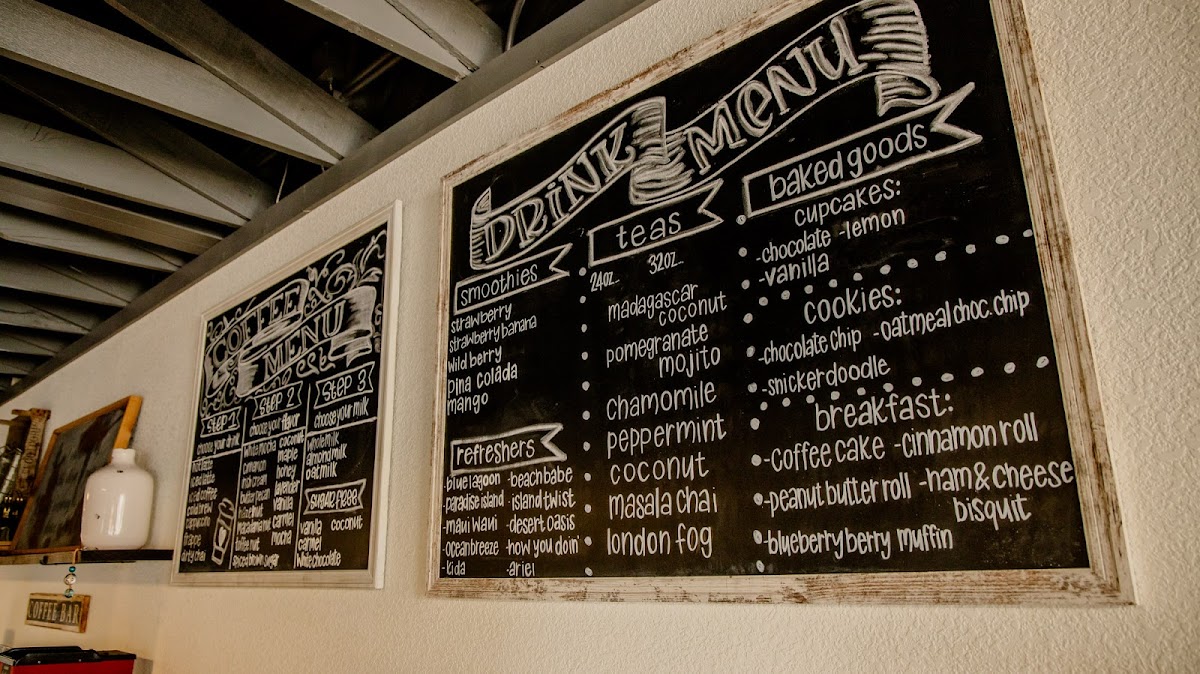 COFFEE
MENU
STEP 1
choose your drink
hot latte
iced latte
iced coffee
cold brew
cappuccino
frappe
hot chai
dirty chai
STEP 2
choose your flavor
white mocha
cinnamon
irish cream
butter pecan
hazelnut
macadamia nut
toffee nut
spiced brown sugar
coconut
maple
honey
lavender
vanilla
carmel
mocha
STEP 3
choose your milk
whole milk
almond milk
oat milk
sugar free
vanilla coconut
carmel
white chocolate
COFFEE BAR
DRINK MENU
smoothies
strawberry
strawberry banana
wild berry
pina colada
mango
refreshers
-blue lagoon -beach babe
-paradise island -island twist
-maui waui -desert oasis
-ocean breeze -how you doin'
-kida -ariel
teas
24oz. 32oz.
madagascar
coconut
pomegranate
mojito
chamomile
peppermint
coconut
masala chai
london fog
baked goods
cupcakes:
-chocolate -lemon
-vanilla
cookies:
-chocolate chip -oatmeal choc. chip
-snickerdoodle
breakfast:
-coffee cake -cinnamon roll
-peanut butter roll -ham & cheese
bisquit
-blueberry berry muffin